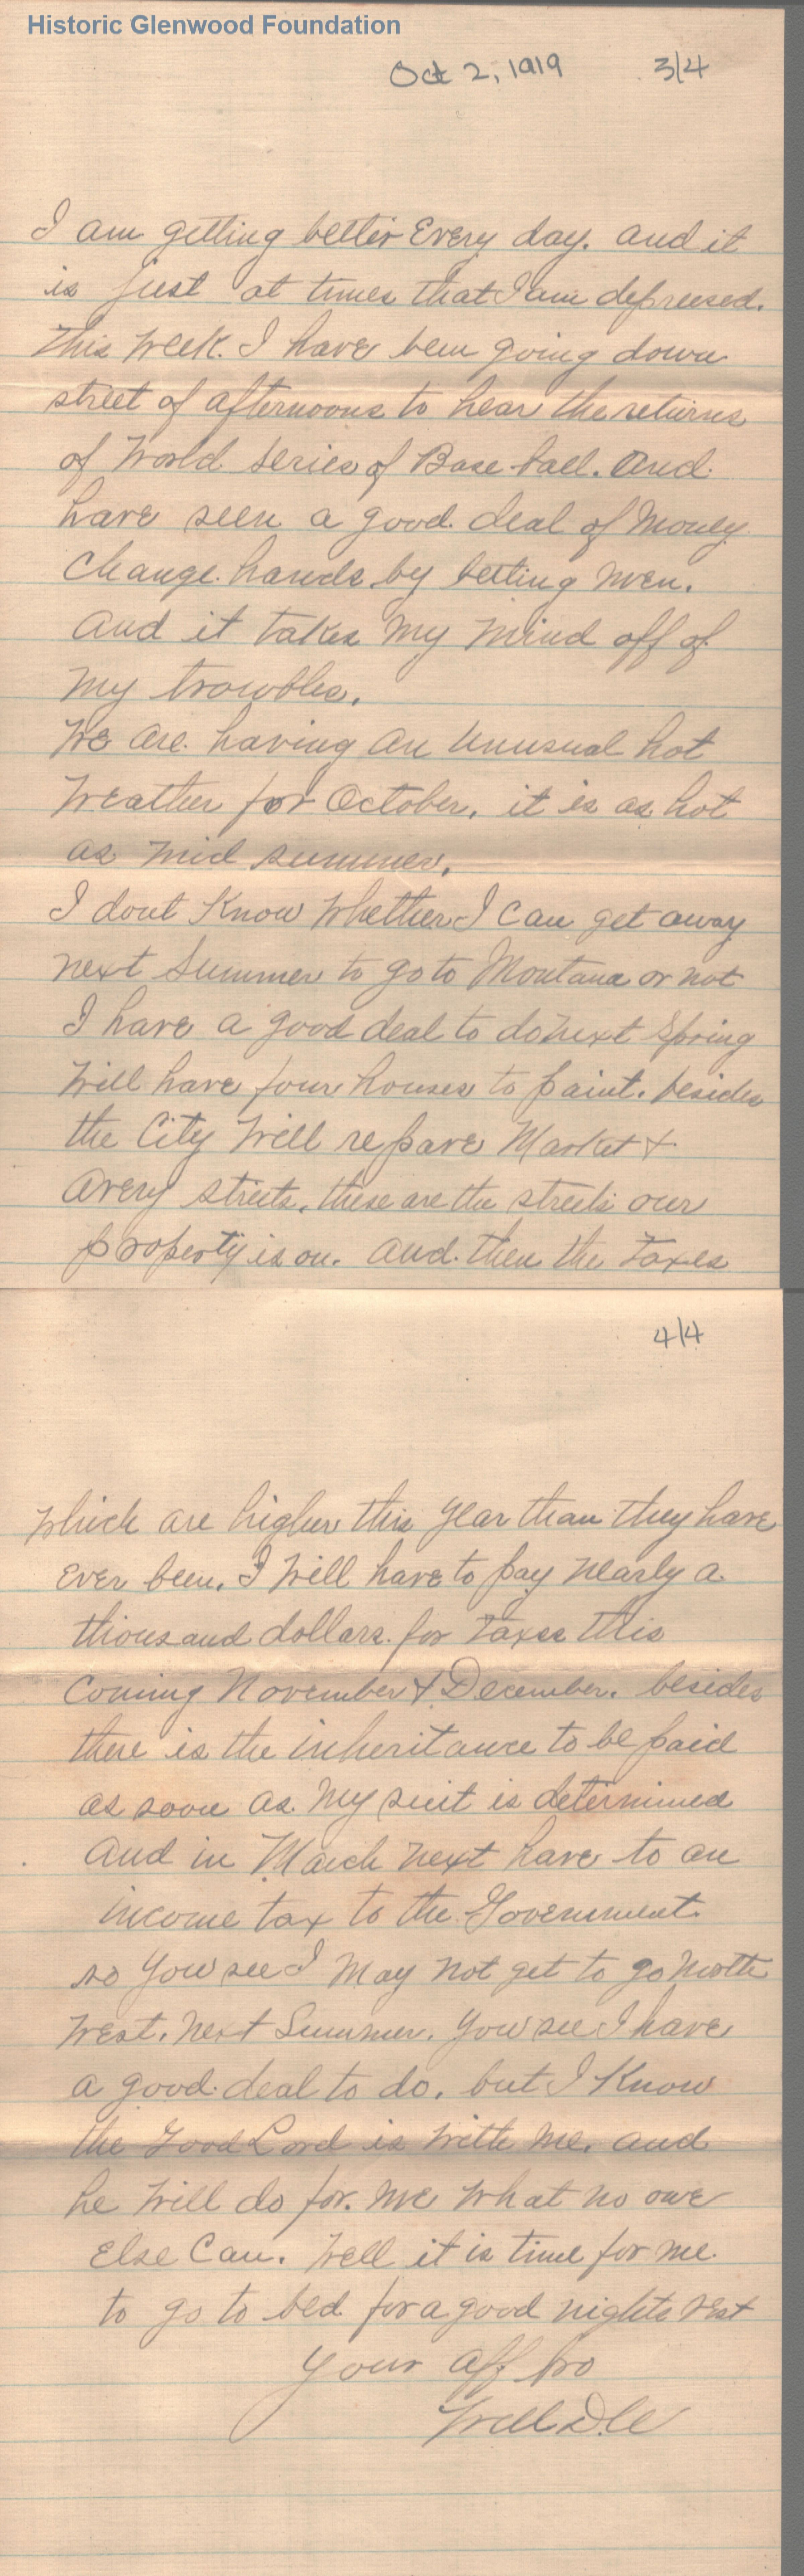 Historic Glenwood Foundation
Oct 2, 1919 3/4
I am getting better Every day. and it
is just at times that I am depressed.
This Week. I have been going down
street of afternoons to hear the returns
of World Series of Base ball. And
have seen a good deal of Money
Change hands by betting Men.
And it takes My Mind off of
My troubles.
We are having an Unusual hot
Weather for October. it is as hot
as Mid summer.
I dont Know Whether I Can get away
next Summer to go to Montana or not
I have a good deal to do next Spring
Will have four houses to paint. besides
the City Will repave Market &
Avery streets. these are the streets our
property is on. And then the Taxes
4/4
Which are higher this year than they have
Ever been. I Will have to pay Nearly a
thousand dollars for Taxes this
Coming November & December. besides
there is the inheritance to be paid
as soon as My suit is determined
And in March Next have to an
income tax to the Government.
so you see I May Not get to go North
West. Next Summer. You see I have
a good deal to do. but I Know
the Good Lord is With Me. and
he Will do for Me What no one
Else Can. Well it is time for me
to go to bed for a good nights rest
Your aff bro
Will